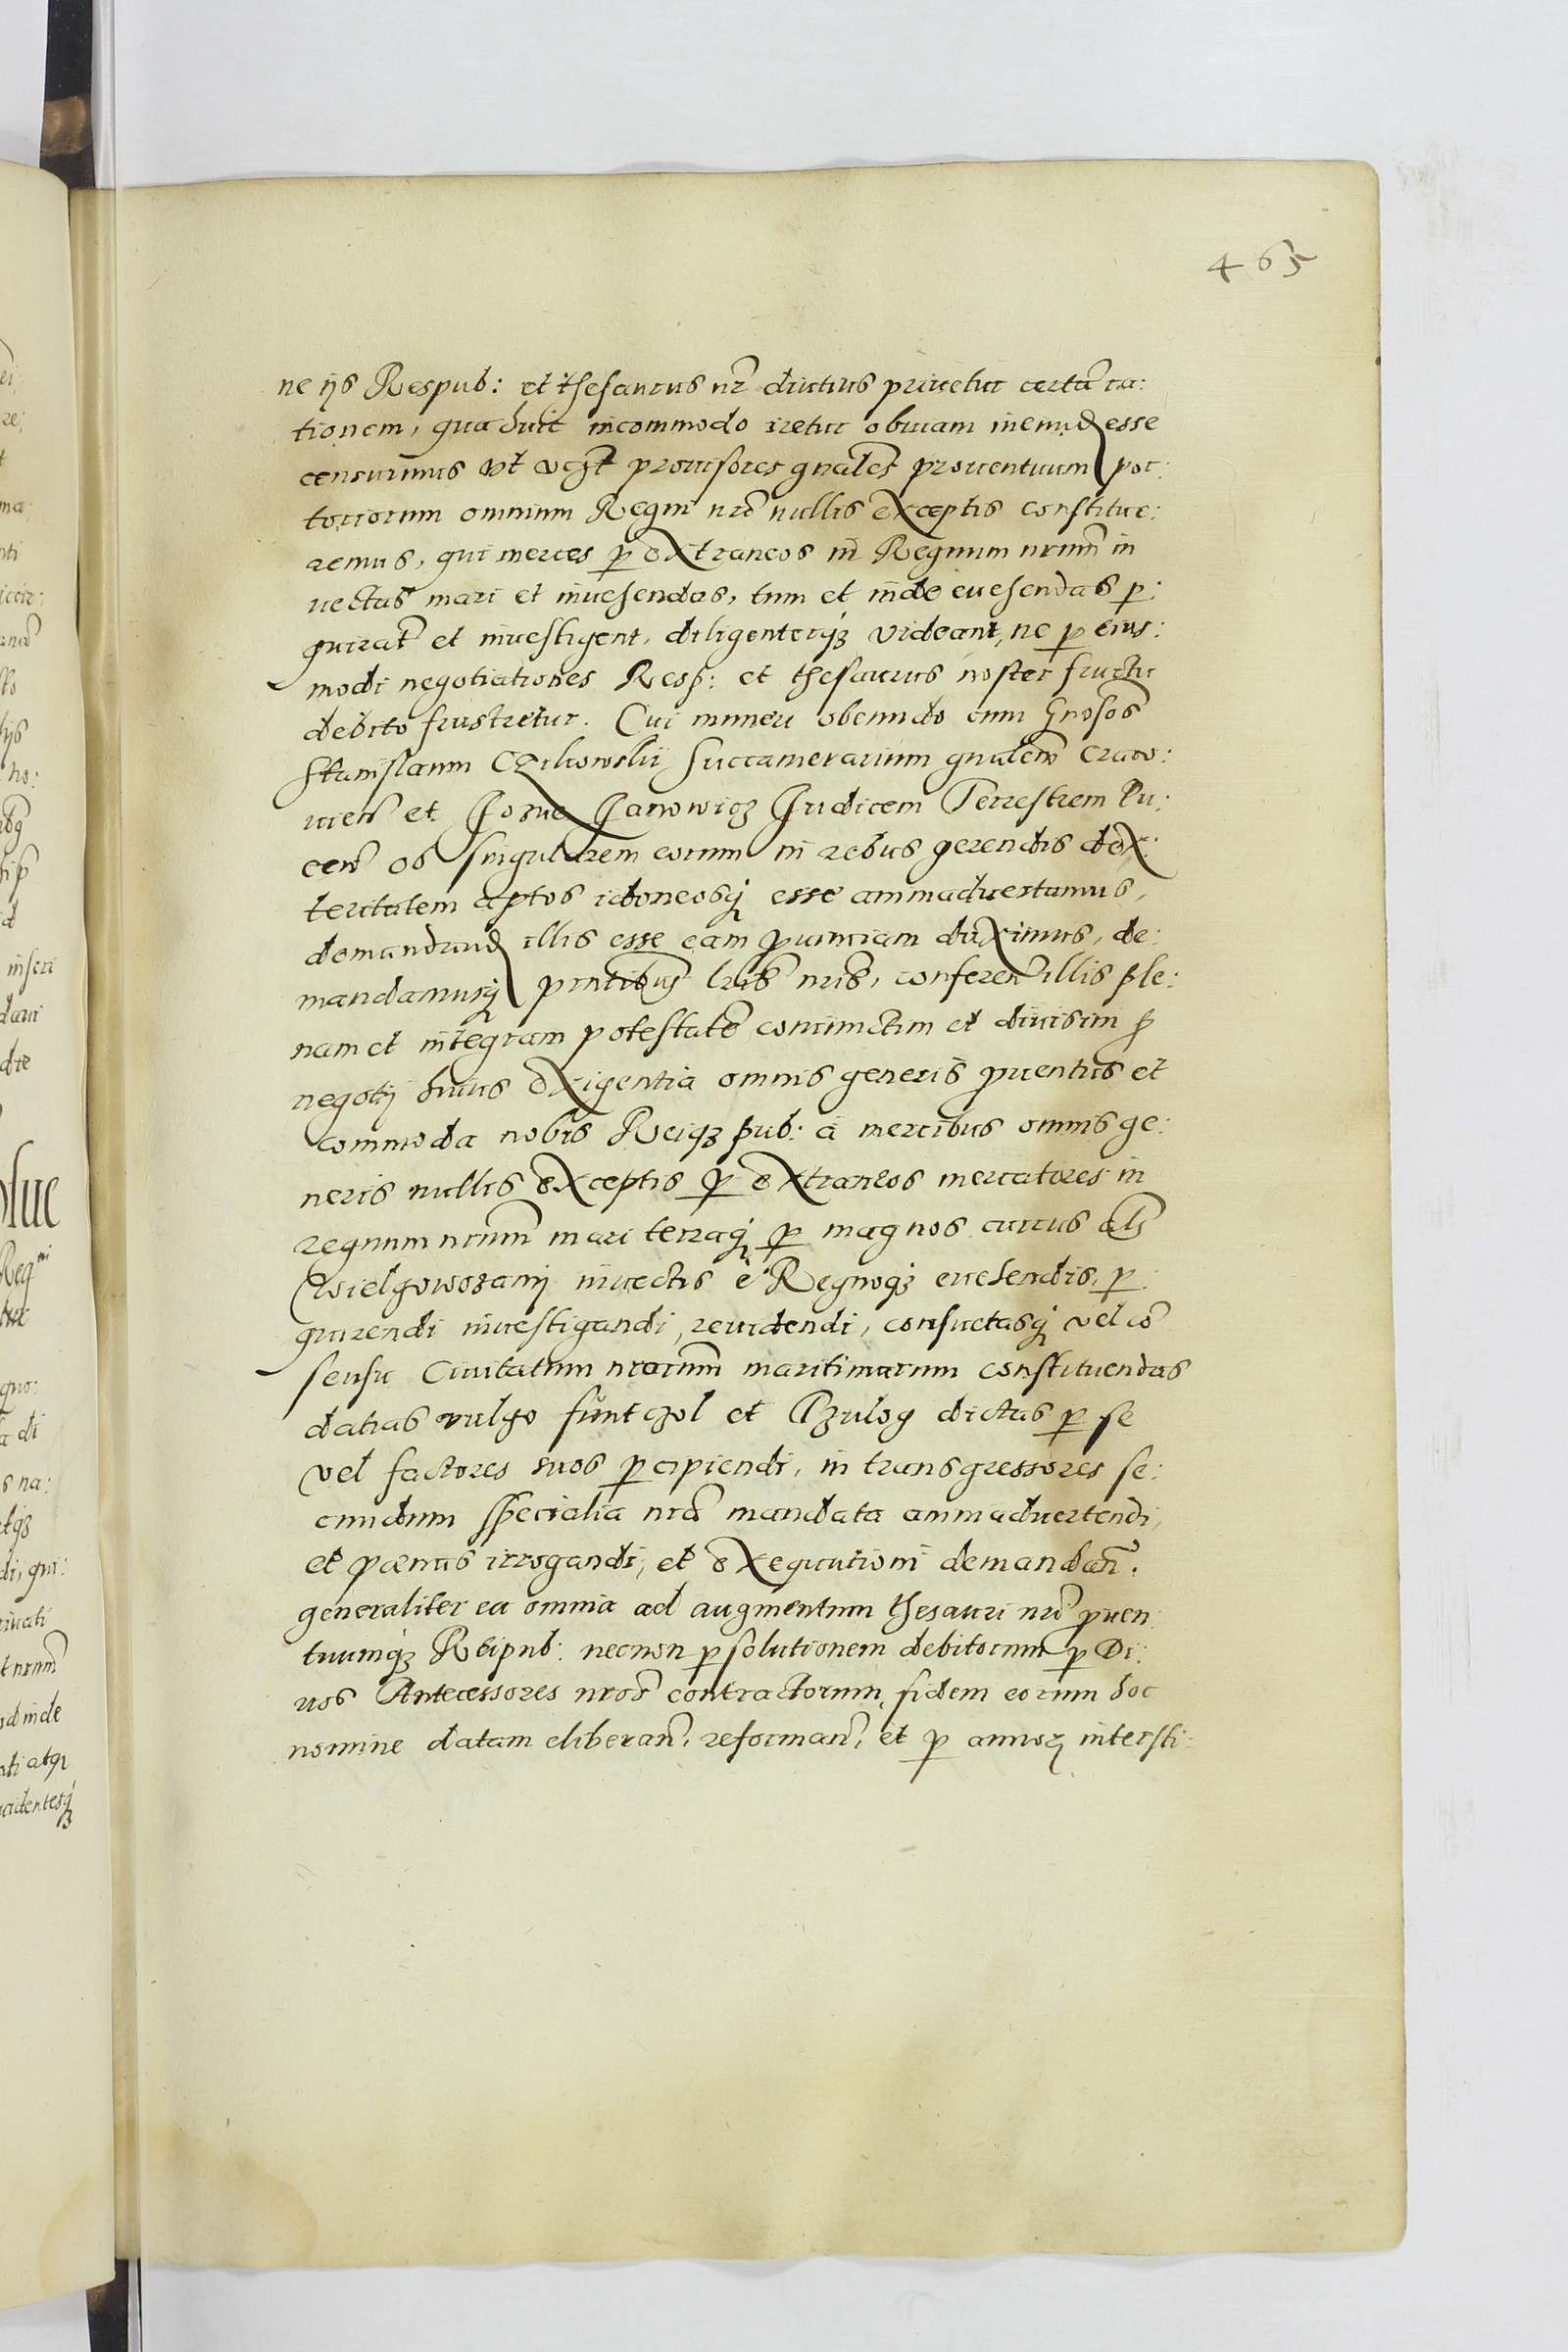 465
ne ijs Respub: et thesaurus nr̃ diutius priuetur certã ra:
tionem, qua huic incommodo iretur obuiam ineund esse
censuimus vt prouisores gnãles prouentuum por:
toriorum omnium Regni nrĩ nullis exceptis constitue:
remus, qui merces p extraneos in Regnum nrũm in
uectas mari et inuehendas, tum et inde euehendas p:
quirãt et inuestigent, diligenterqʒ videant, ne p eius:
modi negotiationes Resp: et thesaurus noster fructu
debito frustretur. Cui muneri obeundo cum Gnosos
Stanislaum Czikowskij Succamerarium gnãlem Craco:
uieñ et Josue Janowicz Judicem Terrestrem Lu:
ceñ ob singularem eorum in rebus gerendis dex:
teritatem aptos idoneosqʒ esse animaduertamus,
demandand illis esse eam puinciam duximus, de:
mandamusqʒ pñtibus lris nris, conferen illis ple:
nam et integram potestatẽ coniunctim et diuisim p
negotij huius exigentia omnis generis puentus et
commoda nobis Reiqʒ pub: à mercibus omnis ge:
neris nullis exceptis p extraneos mercatores in
regnum nrũm mari terraqʒ p magnos currus als
Wielgowozany inuectis è Regnoqʒ euehendis, p
quirendi inuestigandi, reuidendi, consuetasqʒ vel cõ
sensu Ciuitatum nrarum maritimarum constituendas
datias vulgo funtczol et Czulog dictas p se
vel factores suos pcipiendi, in transgressores se:
cundum specialia nrã mandata animaduertendi,
et pænas irrogandi, et exequutioni demandañ.
generaliter ea omnia ad augmentum thesauri nrĩ puen
tuumqʒ Reipub: necnon psolutionem debitorum p Di:
uos Antecessores nros contractorum, fidem eorum hoc
nomine datam eliberañ, reformañ, et p annorʒ intersti: